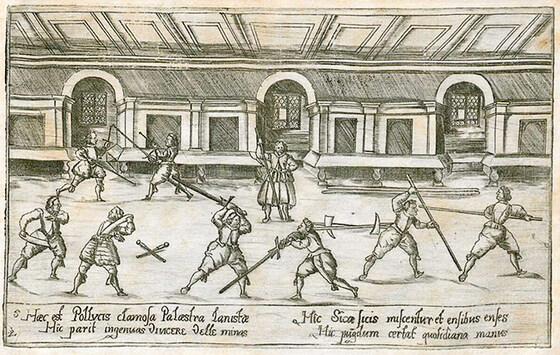 Hæc est Pollucis clamosa Palæstra lanistæ
Hic parit ingenuas VINCERE Velle minas
Hic Sicæ sicis miscentur et ensibus enses
Hic pugilum certat quotidiana manus